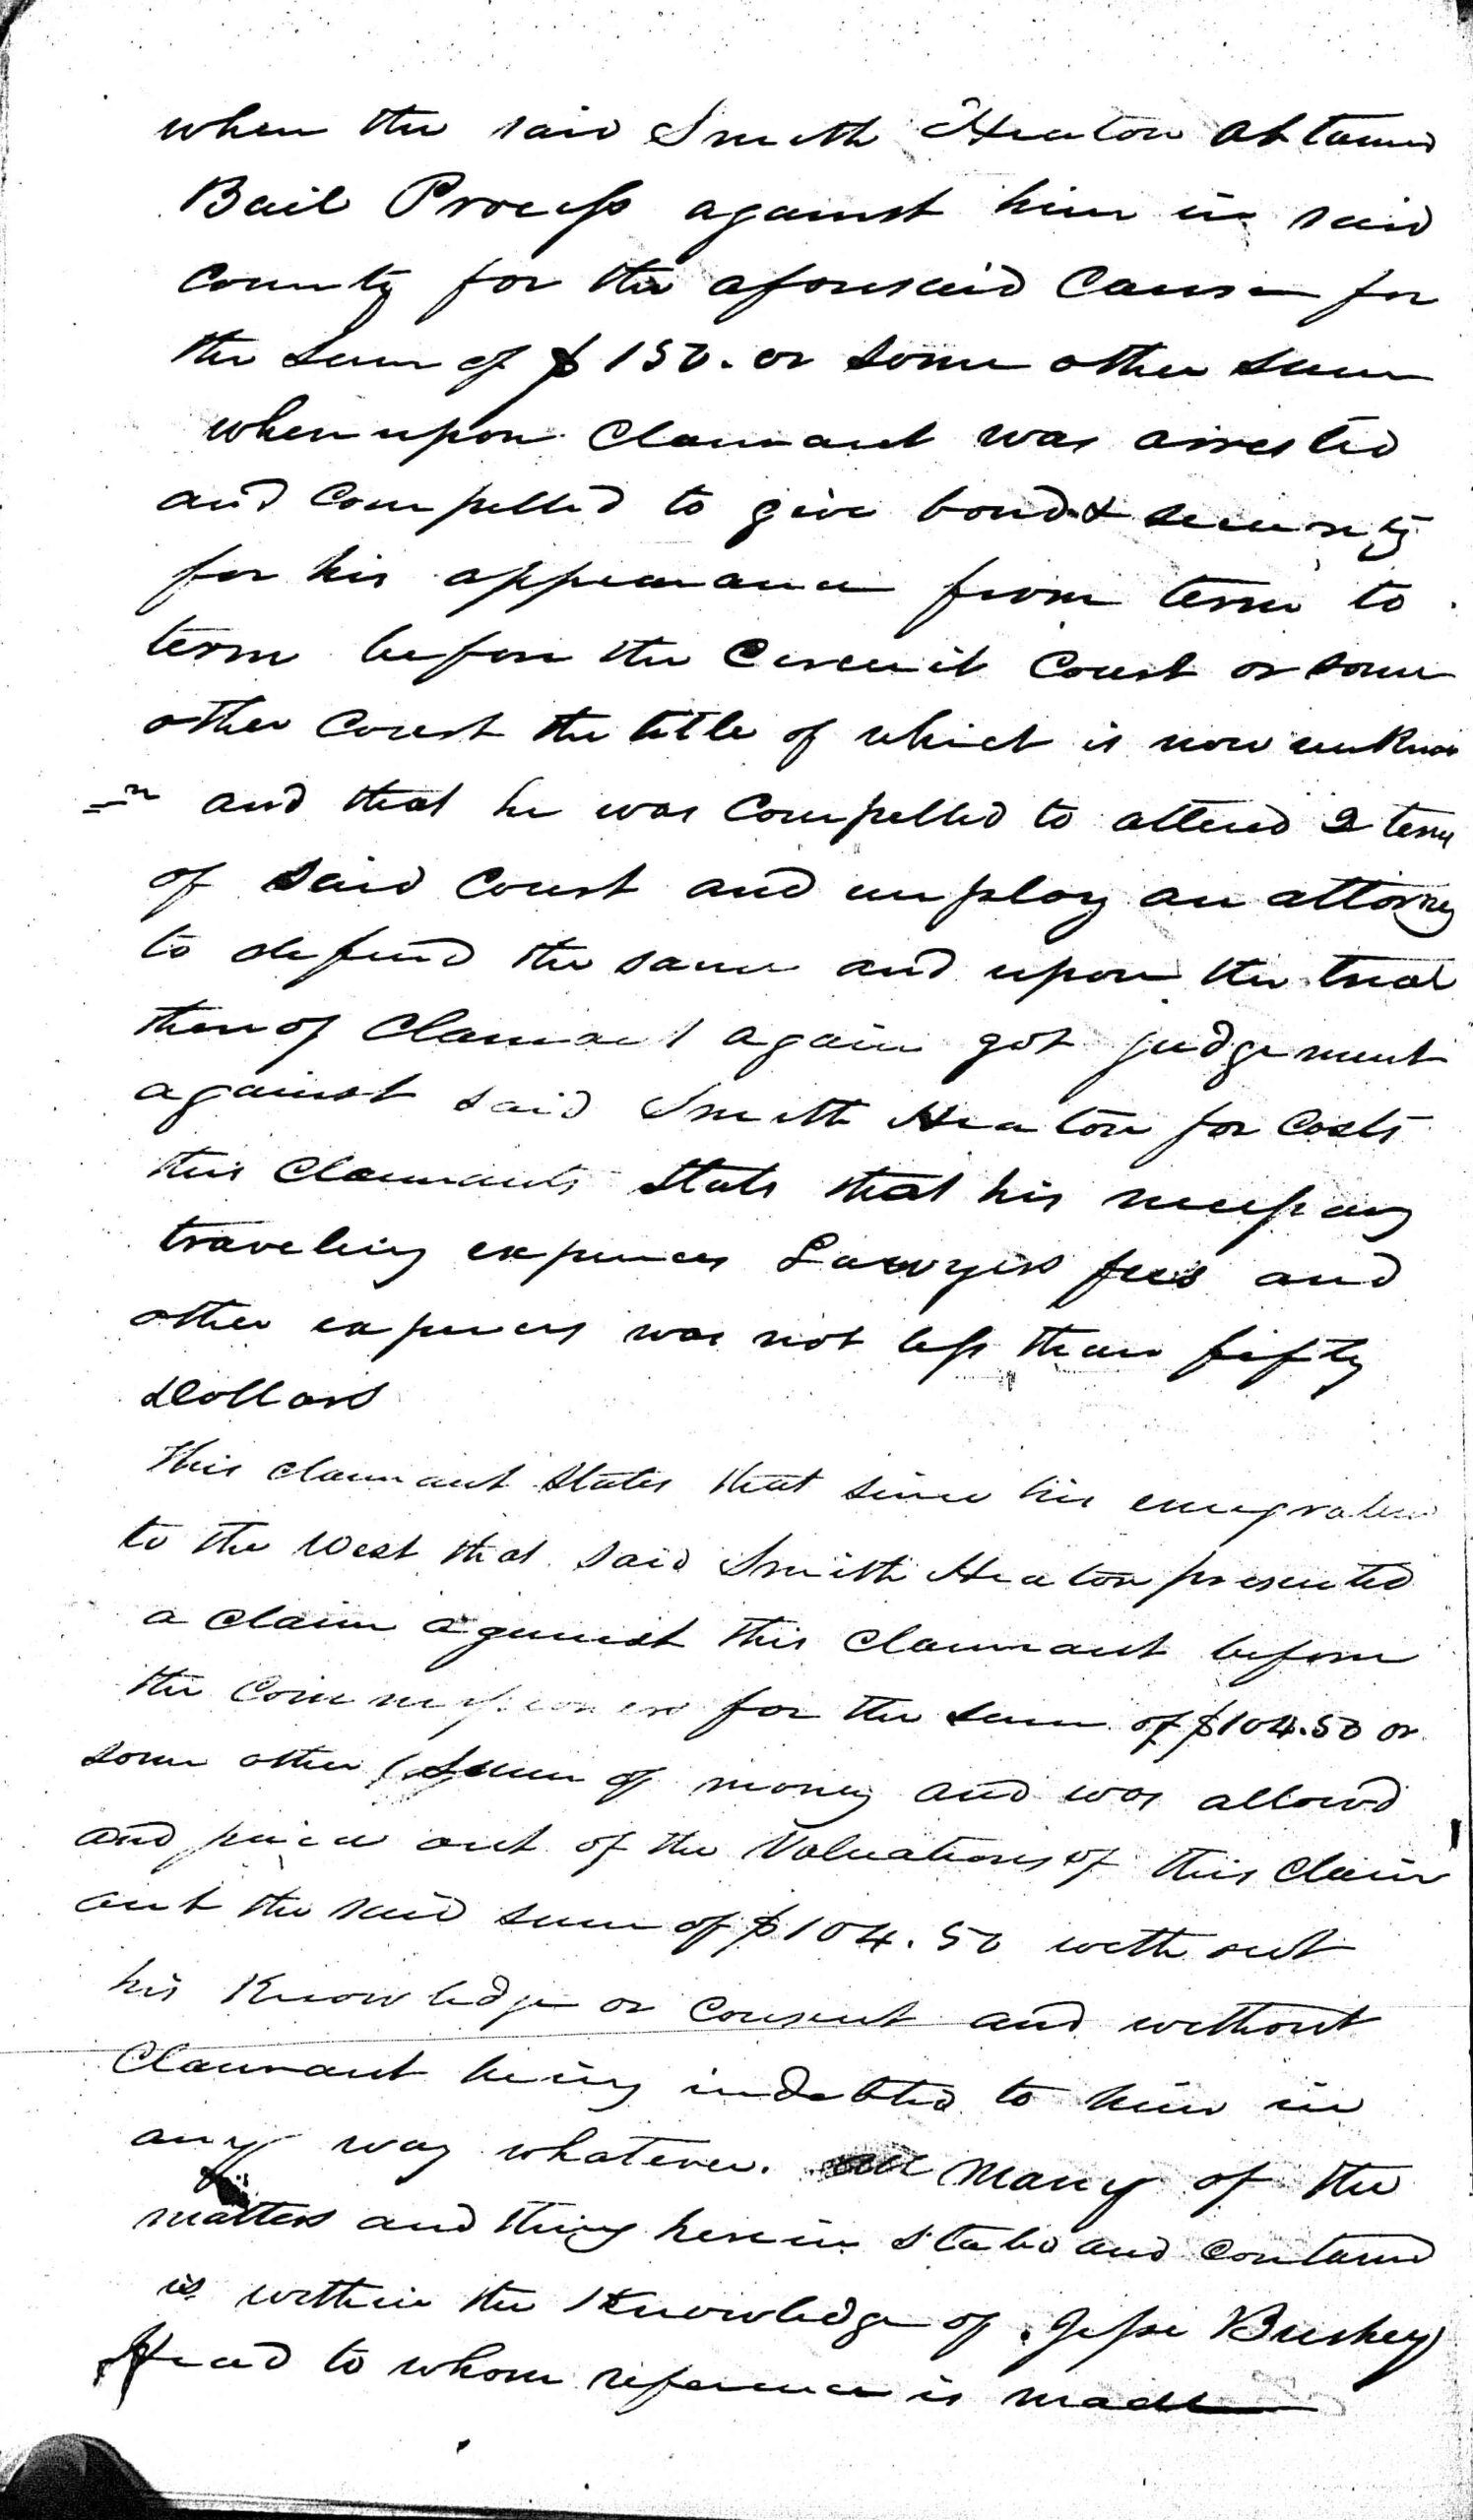 when the said Smith Heaton obtained
Bail Process against him in said
County for the aforesaid Cause for
the Sum of $150. or some other sum
whereupon Claimant was arrested
and Compelled to give bond & security
for his appearance from term to
term before the Circuit Court or some
other Court the title of which is now unknow
=n and that he was Compelled to attend 2 term
of said Court and employ an attorney
to defend the same and upon the trial
thereof Claimant again got judgement
against said Smith Heaton for Costs
this Claimants State that his necessary
traveling expences Lawyers fees and
other expences was not less than fifty
Dollars
This claimant States that since his emigration
to the West that said Smith Heaton presented
a Claim against this Claimant before
the Commissioners for the sum of $104.50 or
some other Sum of money and was allowd
and paid out of the Valuations of this Claim
ant the said sum of $104.50 without
his Knowledge or Consent and without
Claimant being indebted to him in
any way whatever. Many of the
matters and thing herein Stated and Contained
is within the Knowledge of Jesse Bushey
Head to whom reference is made